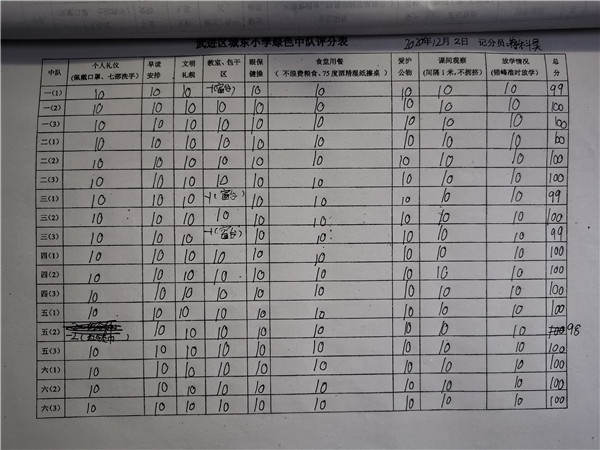 武进区城东小学绿色中队评分表 2020年12月2日 记分员:
中队 个人礼仪(佩戴口罩、七部洗手) 早读安排 文明礼貌 教室、包干区 眼保健操 食堂用餐(不浪费粮食,75度酒精湿纸擦桌) 爱护公物 课间观察(间隔1米,不拥挤) 放学情况(错峰准时放学) 总分
一(1) 10 10 10 -1(窗台) 10 10 10 10 10 99
一(2) 10 10 10 10 10 10 10 10 10 100
一(3) 10 10 10 10 10 10 10 10 10 100
二(1) 10 10 10 10 10 10 10 10 10 100
二(2) 10 10 10 10 10 10 10 10 10 100
二(3) 10 10 10 10 10 10 10 10 10 100
三(1) 10 10 10 -1(窗台) 10 10 10 10 10 99
三(2) 10 10 10 10 10 10 10 10 10 100
三(3) 10 10 10 -1(窗台) 10 10 10 10 10 99
四(1) 10 10 10 10 10 10 10 10 10 100
四(2) 10 10 10 10 10 10 10 10 10 100
四(3) 10 10 10 10 10 10 10 10 10 100
五(1) 10 10 10 10 10 10 10 10 10 100
五(2) -2 10 10 10 10 10 10 10 10 98
五(3) 10 10 10 10 10 10 10 10 10 100
六(1) 10 10 10 10 10 10 10 10 10 100
六(2) 10 10 10 10 10 10 10 10 10 100
六(3) 10 10 10 10 10 10 10 10 10 100